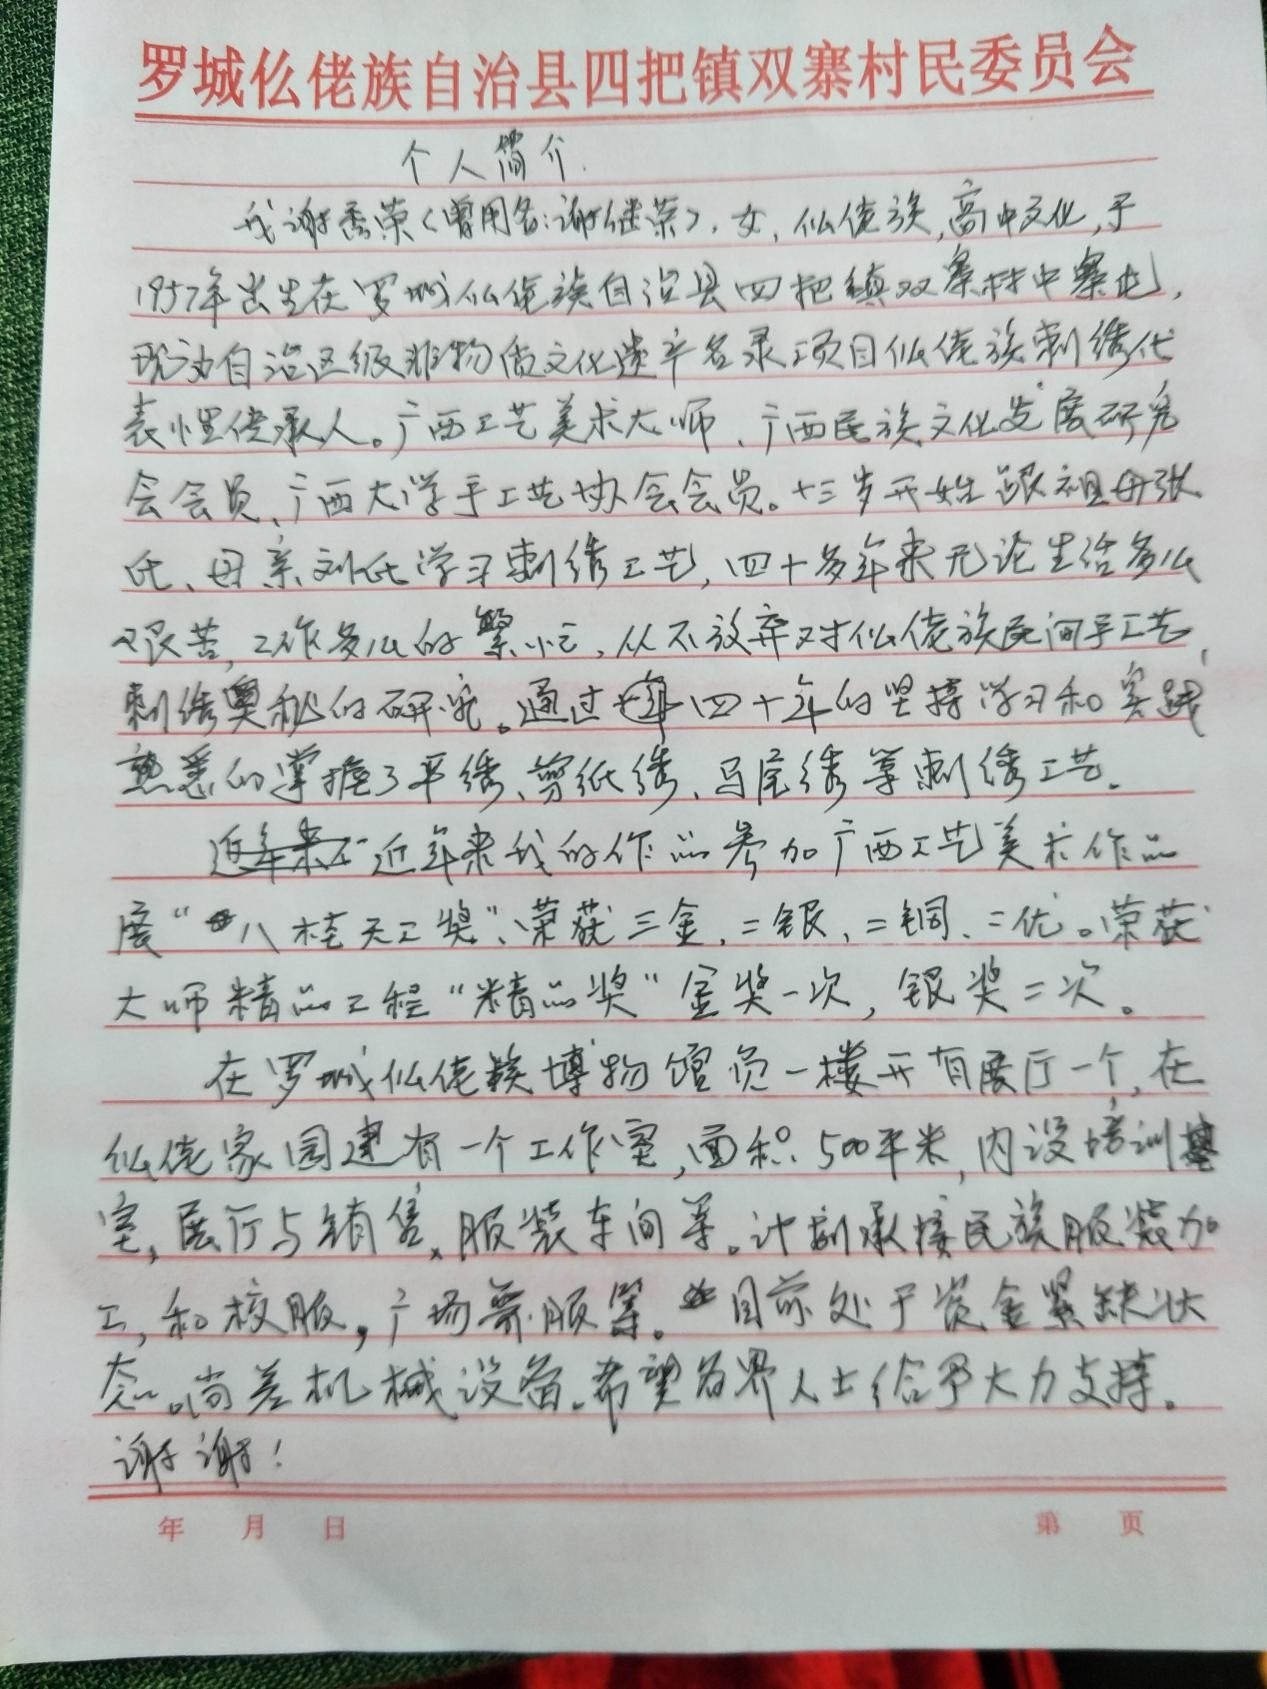 罗城仫佬族自治县四把镇双寨村民委员会
个人简介
我谢秀荣(曾用名:谢继荣),女,仫佬族,高中文化,于
1957年出生在罗城仫佬族自治县四把镇双寨村中寨屯,
现为自治区级非物质文化遗产名录项目仫佬族刺绣代
表性传承人。广西工艺美术大师、广西民族文化发展研究
会会员、广西大学手工艺协会会员。十三岁开始跟祖母张
氏、母亲刘氏学习刺绣工艺,四十多年来无论生活多么
艰苦,工作多么的繁忙,从不放弃对仫佬族民间手工艺
刺绣奥秘的研究。通过四十年的坚持学习和实践
熟悉的掌握了平绣、剪纸绣、马尾绣等刺绣工艺。
近年来我的作品参加广西工艺美术作品
展“八桂天工奖”、荣获三金、二银、二铜、二优。荣获
大师精品工程“精品奖”金奖一次,银奖二次。
在罗城仫佬族博物馆员一楼开有展厅一个,在
仫佬家园建有一个工作室,面积500平米,内设培训
室,展厅与销售、服装车间等。计划承接民族服装加
工,和校服,广场舞服等。目前处于资金紧缺状
态。尚差机械设备。希望各界人士给予大力支持。
谢谢!
年 月 日 第 页